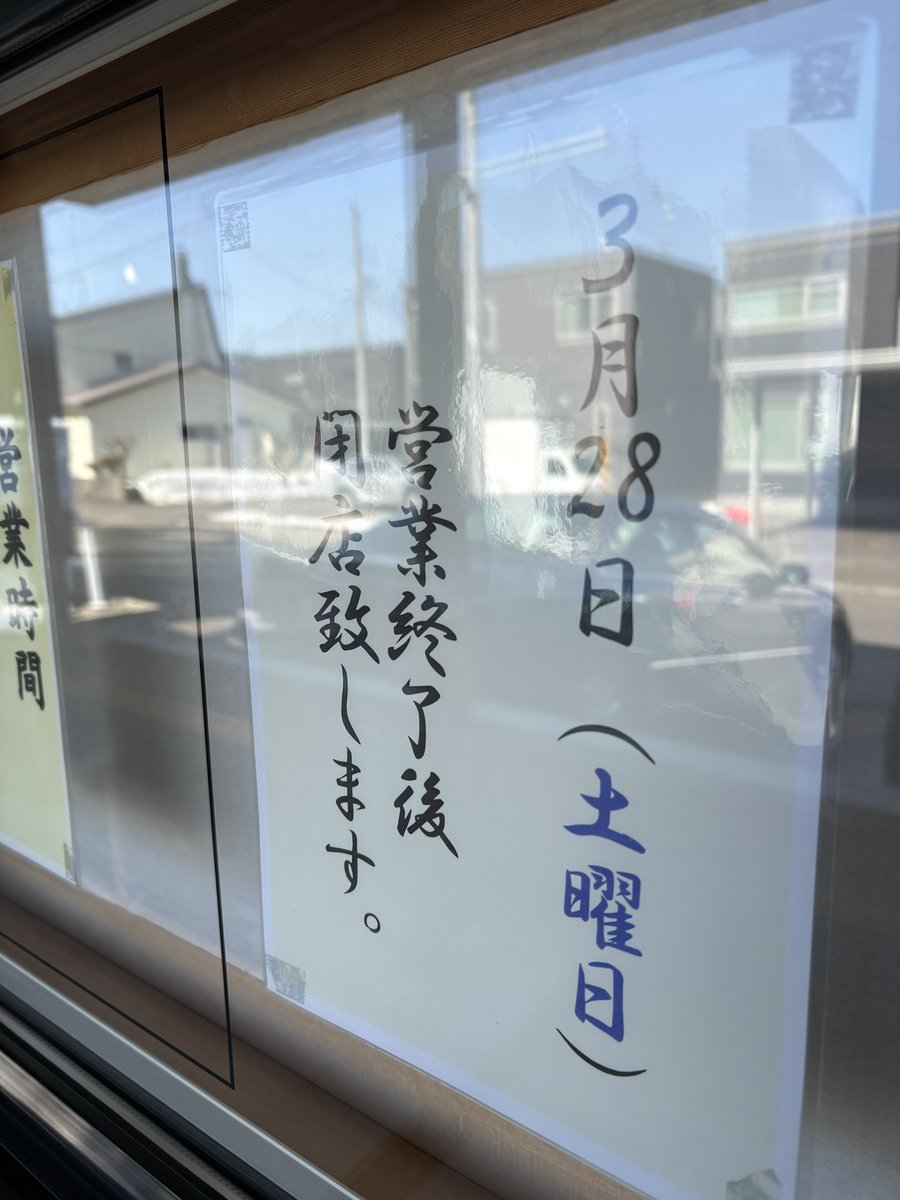 3月28日(土曜日)
営業終了後
閉店致します。
営業時間